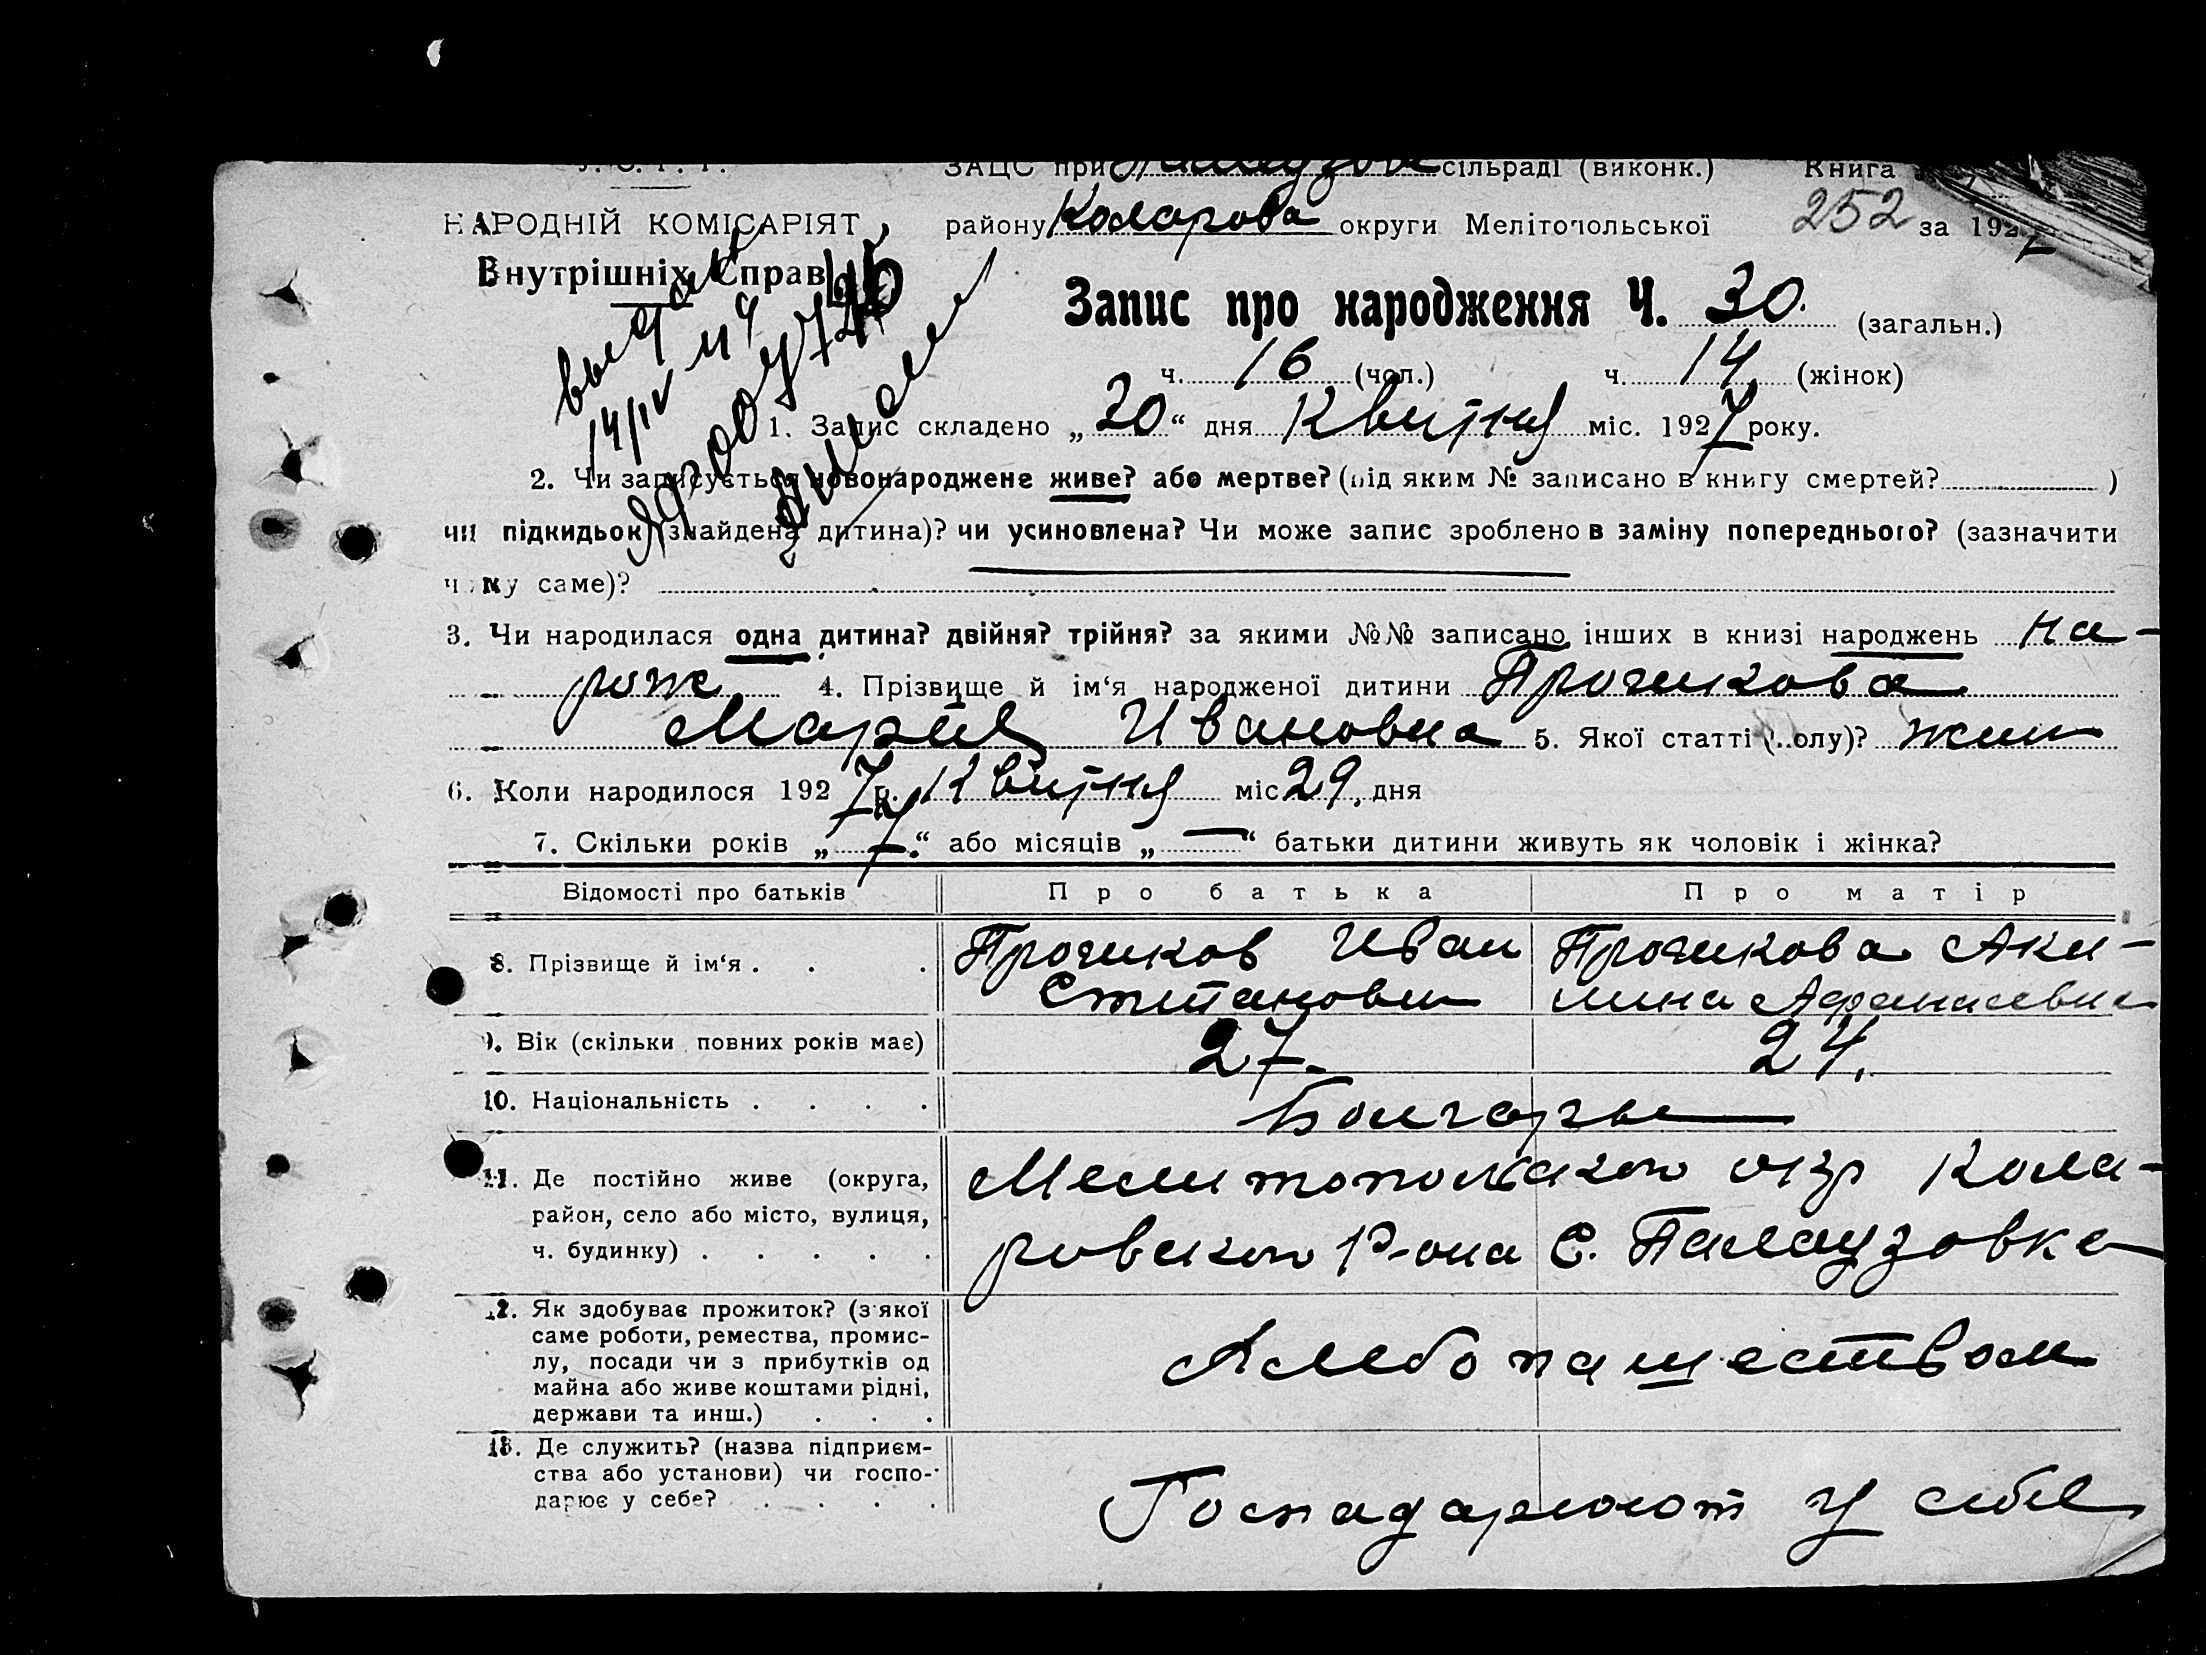 У. С. Р. Р. ЗАЦС при Палаузове сільраді (виконк.) Книга
НАРОДНІЙ КОМІСАРІЯТ району Коларова округи Мелітопольської 252 за 1927
Внутрішніх Справ
Запис про народження Ч. 30. (загальн.)
выдан
14/IV
ч. 16 (чол.) ч. 14 (жінок)
1. Запис складено „30“ дня Квитня міс. 1927 року.
2. Чи записується новонароджене живе? або мертве? (під яким № записано в книгу смертей? )
чи підкидьок (знайдена дитина)? чи усиновлена? Чи може запис зроблено в заміну попереднього? (зазначити
чому саме)?
3. Чи народилася одна дитина? двійня? трійня? за якими №№ записано інших в книзі народжень на-
рож 4. Прізвище й ім‘я народженої дитини Прочикова
Мария Ивановна 5. Якої статті (полу)? жин
6. Коли народилося 1927 р. Квитня міс 29, дня
7. Скільки років „7.“ або місяців „—“ батьки дитини живуть як чоловік і жінка?
Відомості про батьків Про батька Про матір
8. Прізвище й ім‘я . . . Прочиков Иван Прочикова Аки-
Степанови лина Афанасевна
9. Вік (скільки повних років має) 27. 24.
10. Національність . . . . Болгары
11. Де постійно живе (округа, Мелитопольского окр Кола-
район, село або місто, вулиця,
ч. будинку) . . . . . ровского Р-она С. Палаузовка
12. Як здобуває прожиток? (з якої
саме роботи, ремества, промис-
лу, посади чи з прибутків од Хлебопашеством
майна або живе коштами рідні,
держави та инш.) . . .
13. Де служить? (назва підприєм-
ства або установи) чи госпо-
дарює у себе? . . . . Господарюют у себе